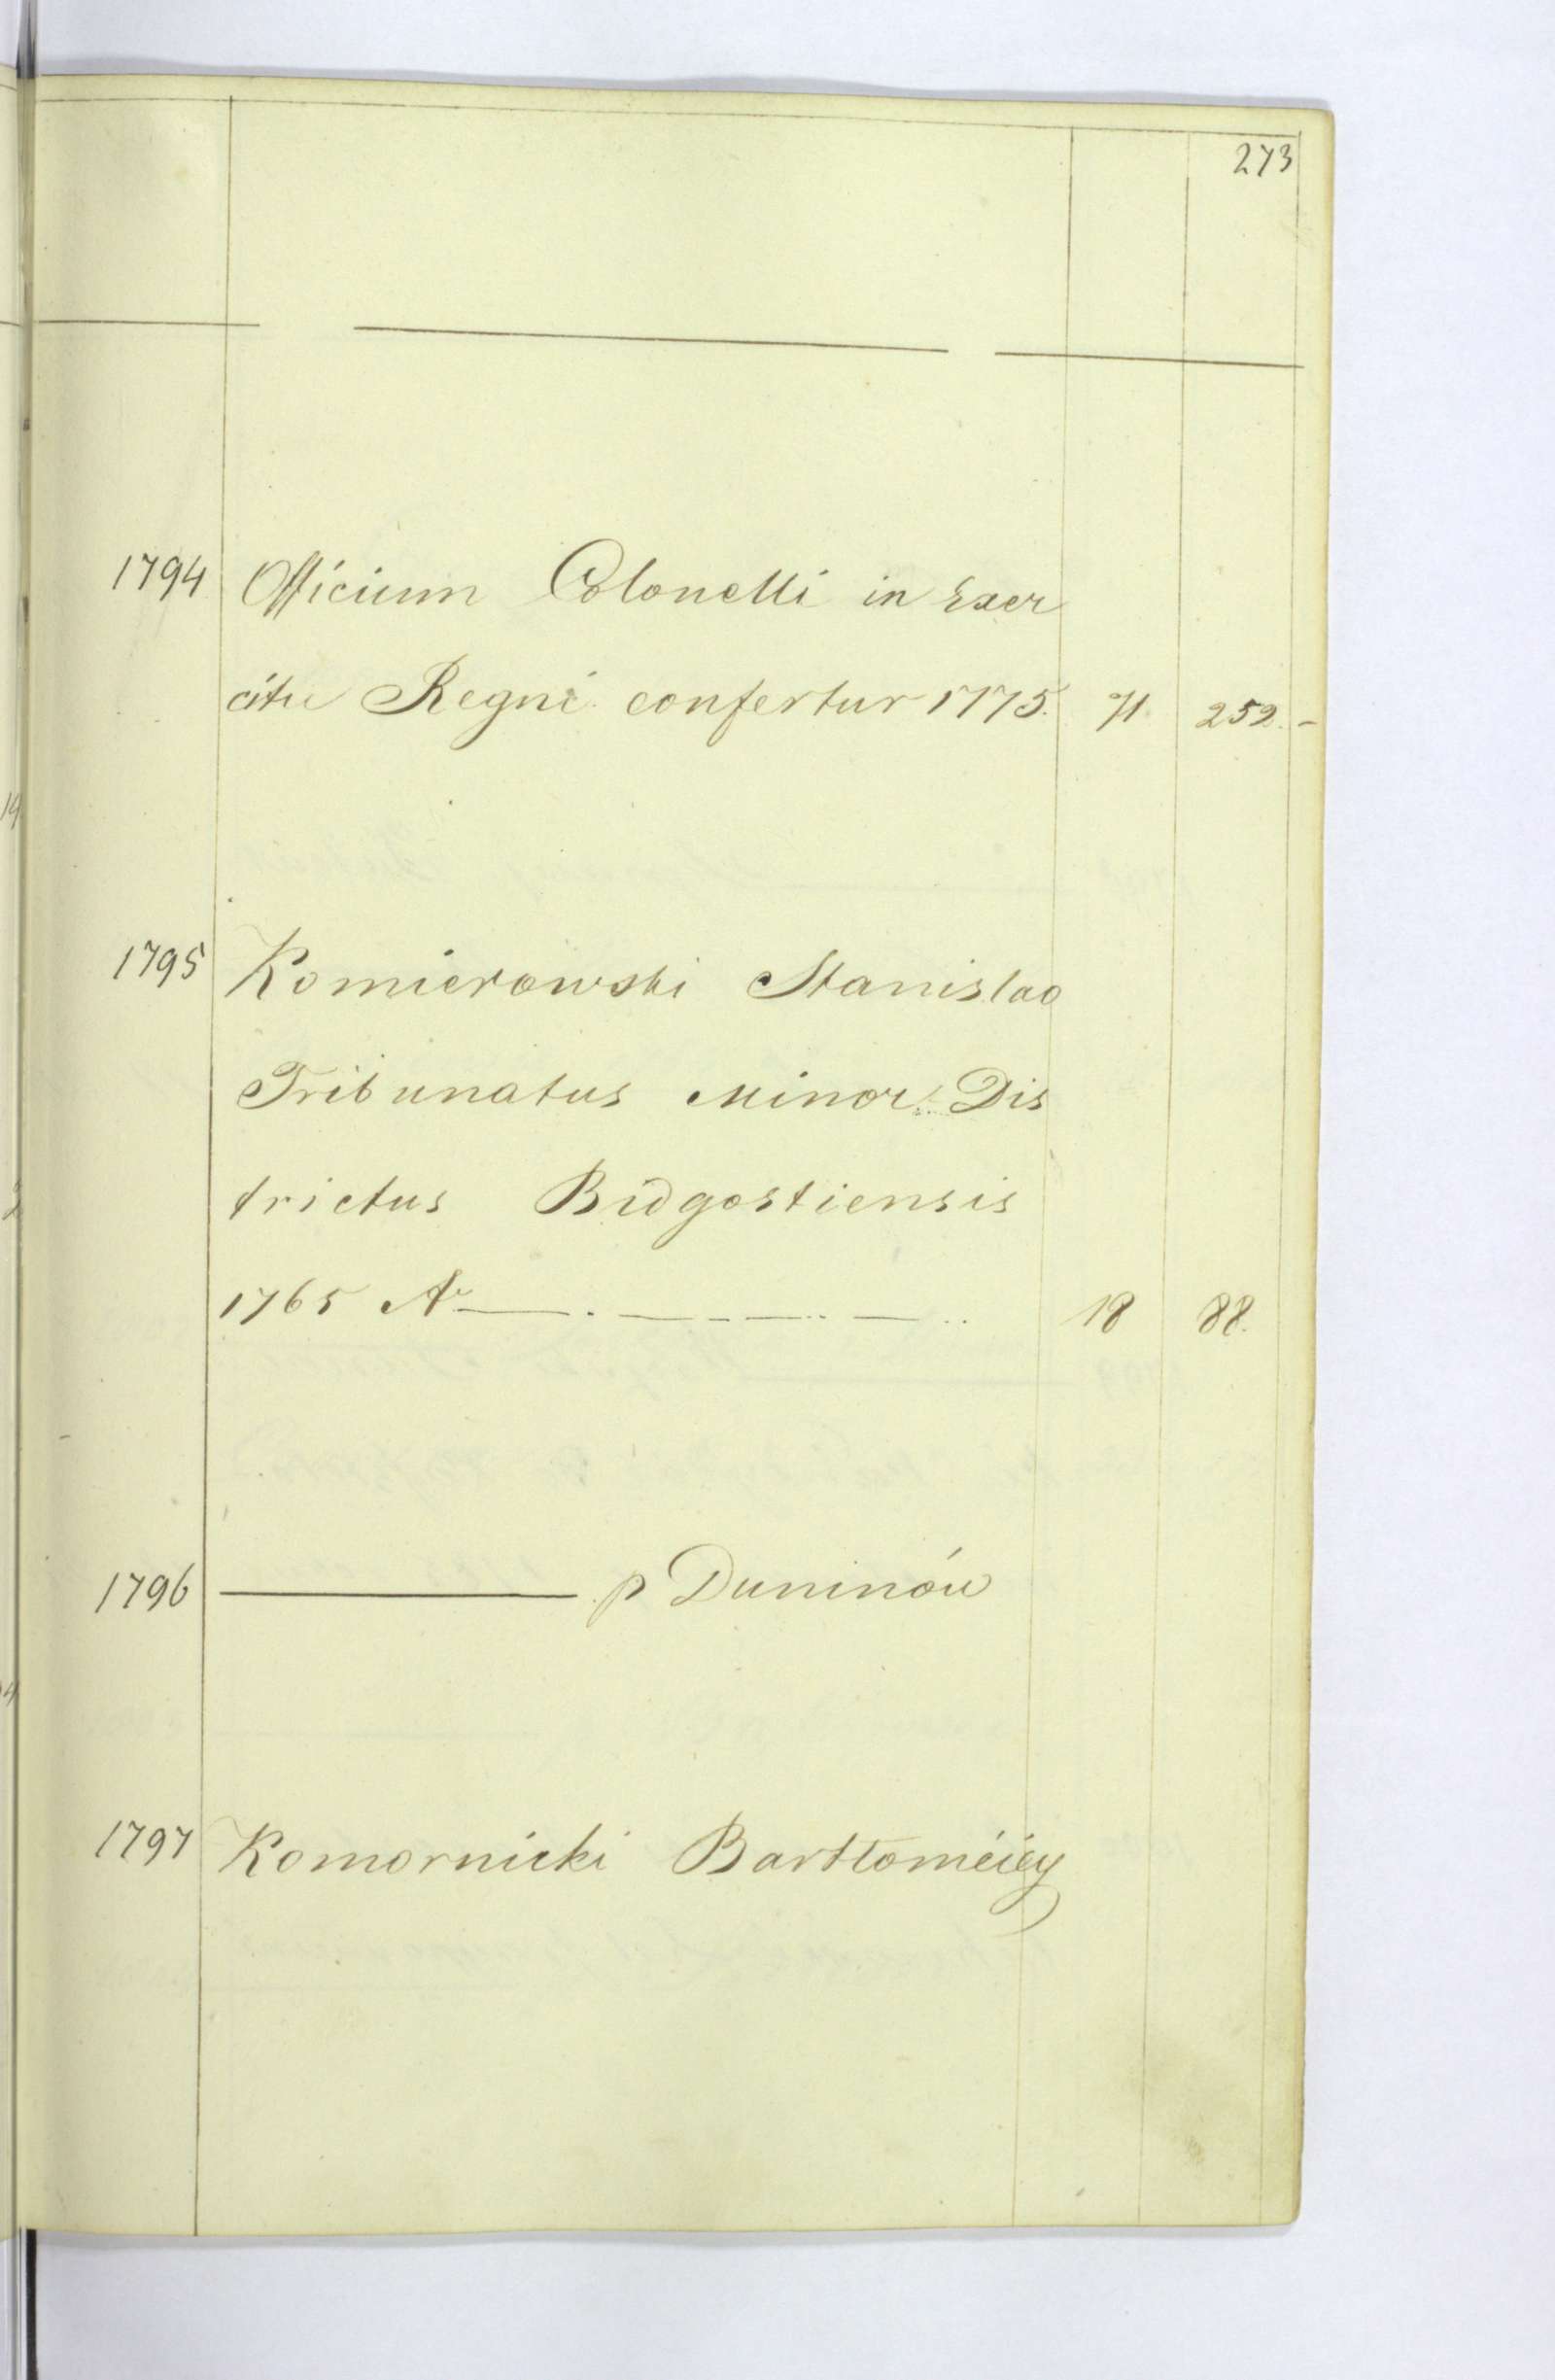 273
1794 Officium Colonelli in Exer
citu Regni confertur 1775. 71 252. -
1795 Komierowski Stanislao
Tribunatus Minor. Dis
trictus Bidgostiensis
1765 Ao — . — - — .. — .. 18 88.
1796 — p Duninów
1797 Komornicki Bartłomieiy